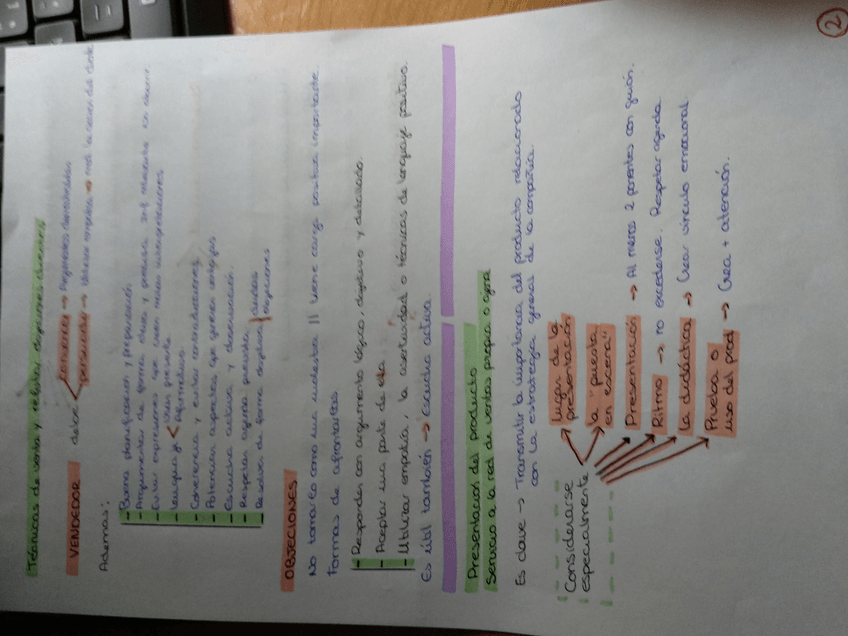 2
Técnicas de venta y rebatir objeciones
VENDEDOR debe convencer → Argumentos demostrables
persuadir → Utilizar empatía →
Además:
- Buena planificación y preparación
- Argumentos de forma clara y precisa
- Evitar expresiones que creen malas interpretaciones
- Lenguaje < presente
afirmativo
- Coherencia y evitar contradicciones
- Potenciar aspectos que generen
- Escucha activa y observación.
- Respetar agenda prevista
- Resolver de forma objetiva dudas
objeciones
OBJECIONES
No tomarlo como una molestia || tiene carga positiva importante.
Formas de afrontarlas
- Responder con argumento lógico, objetivo y detallado.
- Aceptar una parte de ella
- Utilizar empatía, la asertividad o técnicas de lenguaje positivo.
Es útil también → Escucha activa
Presentación del producto
servicio a la red de ventas propia o ajena
Es clave → Transmitir la importancia del producto relacionado
con la estrategia general de la compañía.
Considerarse
especialmente
lugar de la
presentación
la "puesta
en escena"
Presentación → Al menos 2 ponentes con guión.
Ritmo → no excederse. Respetar agenda
La didáctica → Crear vínculo emocional
Prueba o
uso del prod → Crea + atención.